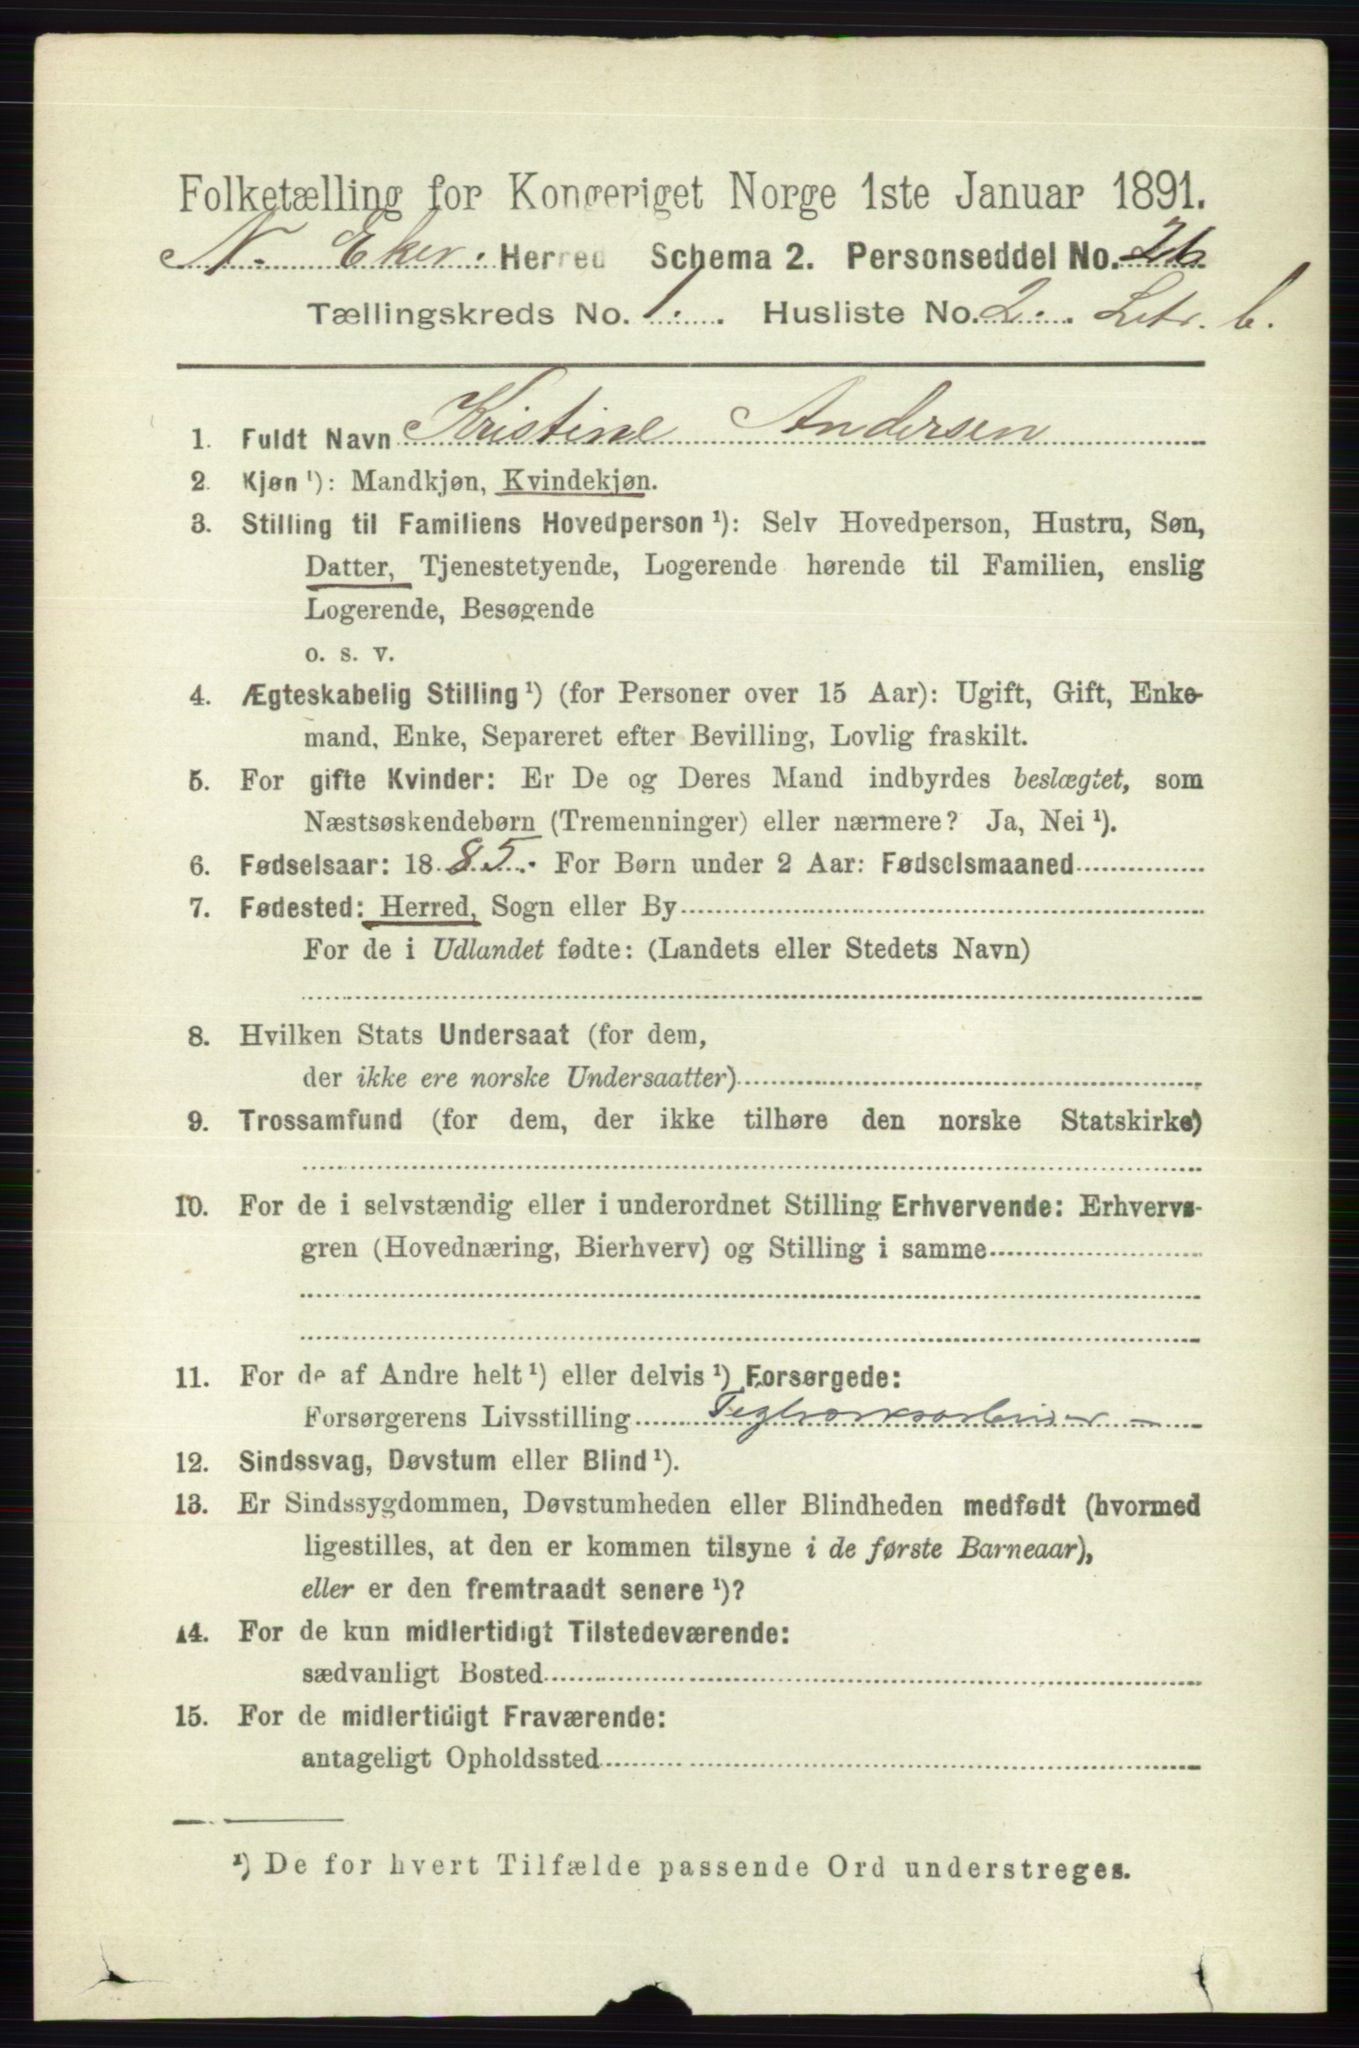 Folketælling for Kongeriget Norge 1ste Januar 1891.
N. Eker. Herred Schema 2. Personseddel No. 26
Tællingskreds No. 1. Husliste No. 2. Litr. b.
1. Fuldt Navn Kristine Andersen
2. Kjøn ¹): Mandkjøn, Kvindekjøn.
3. Stilling til Familiens Hovedperson ¹): Selv Hovedperson, Hustru, Søn,
Datter, Tjenestetyende, Logerende hørende til Familien, enslig
Logerende, Besøgende
o. s. v.
4. Ægteskabelig Stilling ¹) (for Personer over 15 Aar): Ugift, Gift, Enke-
mand, Enke, Separeret efter Bevilling, Lovlig fraskilt.
5. For gifte Kvinder: Er De og Deres Mand indbyrdes beslægtet, som
Næstsøskendebørn (Tremenninger) eller nærmere? Ja, Nei ¹).
6. Fødselsaar: 1885. For Børn under 2 Aar: Fødselsmaaned
7. Fødested: Herred, Sogn eller By
For de i Udlandet fødte: (Landets eller Stedets Navn)
8. Hvilken Stats Undersaat (for dem,
der ikke ere norske Undersaatter)
9. Trossamfund (for dem, der ikke tilhøre den norske Statskirke)
10. For de i selvstændig eller i underordnet Stilling Erhvervende: Erhvervs-
gren (Hovednæring, Bierhverv) og Stilling i samme
11. For de af Andre helt ¹) eller delvis ¹) Forsørgede:
Forsørgerens Livsstilling Teglværksarbeider —
12. Sindssvag, Døvstum eller Blind ¹).
13. Er Sindssygdommen, Døvstumheden eller Blindheden medfødt (hvormed
ligestilles, at den er kommen tilsyne i de første Barneaar),
eller er den fremtraadt senere ¹)?
14. For de kun midlertidigt Tilstedeværende:
sædvanligt Bosted
15. For de midlertidigt Fraværende:
antageligt Opholdssted
¹) De for hvert Tilfælde passende Ord understreges.